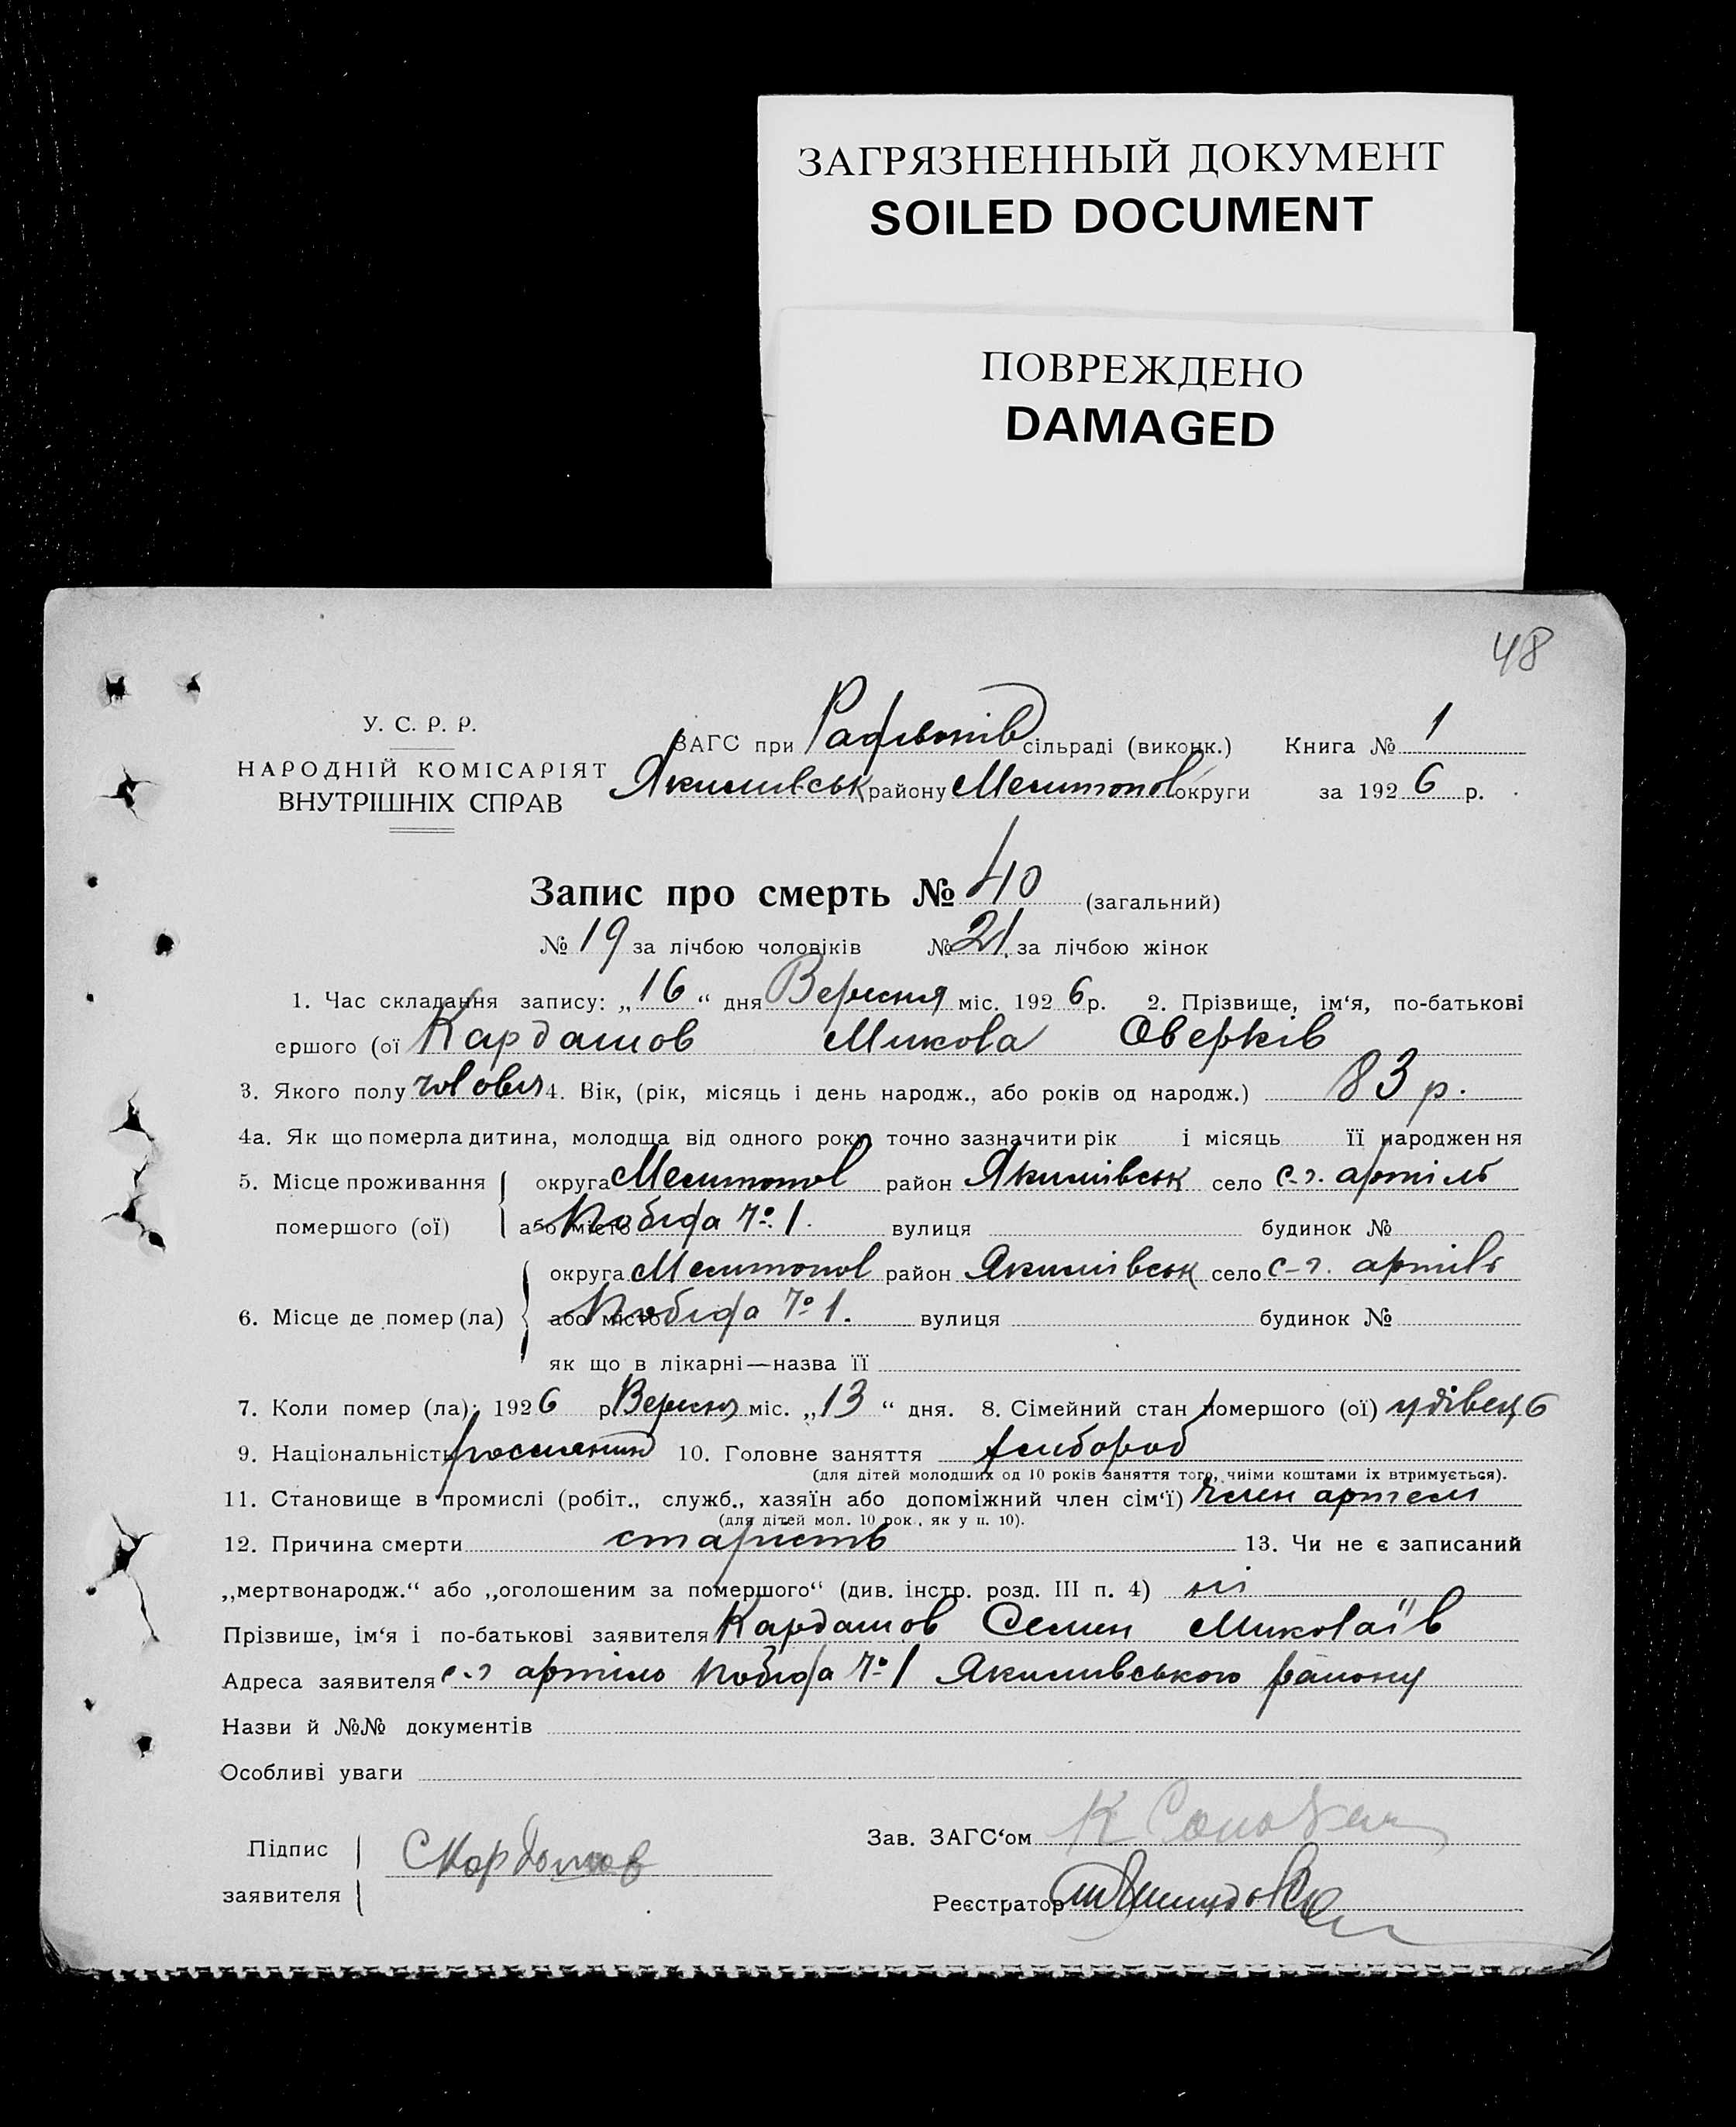 ЗАГРЯЗНЕННЫЙ ДОКУМЕНТ
SOILED DOCUMENT
ПОВРЕЖДЕНО
DAMAGED
48
У. С. Р. Р.
НАРОДНІЙ КОМІСАРІЯТ
ВНУТРІШНІХ СПРАВ
ЗАГС при сільраді (виконк.) Книга № 1
Якимівськ району Мелитопол округи за 1926 р.
Запис про смерть № 40 (загальний)
№ 19 за лічбою чоловіків № 21 за лічбою жінок
1. Час складання запису: „16“ дня Вересня міс. 1926 р. 2. Прізвище, ім‘я, по-батькові
ершого (ої Кардашов Микола Оверків
3. Якого полу 4. Вік, (рік, місяць і день народж., або років од народж.) 83 р.
4а. Як що померла дитина, молодща від одного року, точно зазначити рік і місяць її народження
5. Місце проживання округа Мелитопол район Якимівськ село с-г. артіль
померш​ого (ої) або місто Побіда № 1. вулиця будинок №
округа Мелитопол район Якимівськ село с-г. артіль
6. Місце де помер (ла) або місто Побіда № 1. вулиця будинок №
як що в лікарні—назва її
7. Коли помер (ла): 1926 р Вересня міс. „13“ дня. 8. Сімейний стан помершого (ої) удівець
9. Національність росиянин 10. Головне заняття хлібороб
(для дітей молодших од 10 років заняття того, чиїми коштами їх втримується).
11. Становище в промислі (робіт., служб., хазяїн або допоміжний член сім‘ї) член артели
(для дітей мол. 10 рок., як у п. 10).
12. Причина смерти старисть 13. Чи не є записаний
„мертвонародж.“ або „оголошеним за помершого“ (див. інстр. розд. III п. 4) ні
Прізвише, ім‘я і по-батькові заявителя Кардашов Семен Миколаїв
Адреса заявителя с-г артіль Побіда № 1 Якимивського району
Назви й №№ документів
Особливі уваги
Підпис заявителя СКардашов
Зав. ЗАГС‘ом
Реєстратор